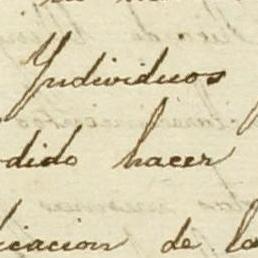 Yndividuos
dido hacer
icacion de la